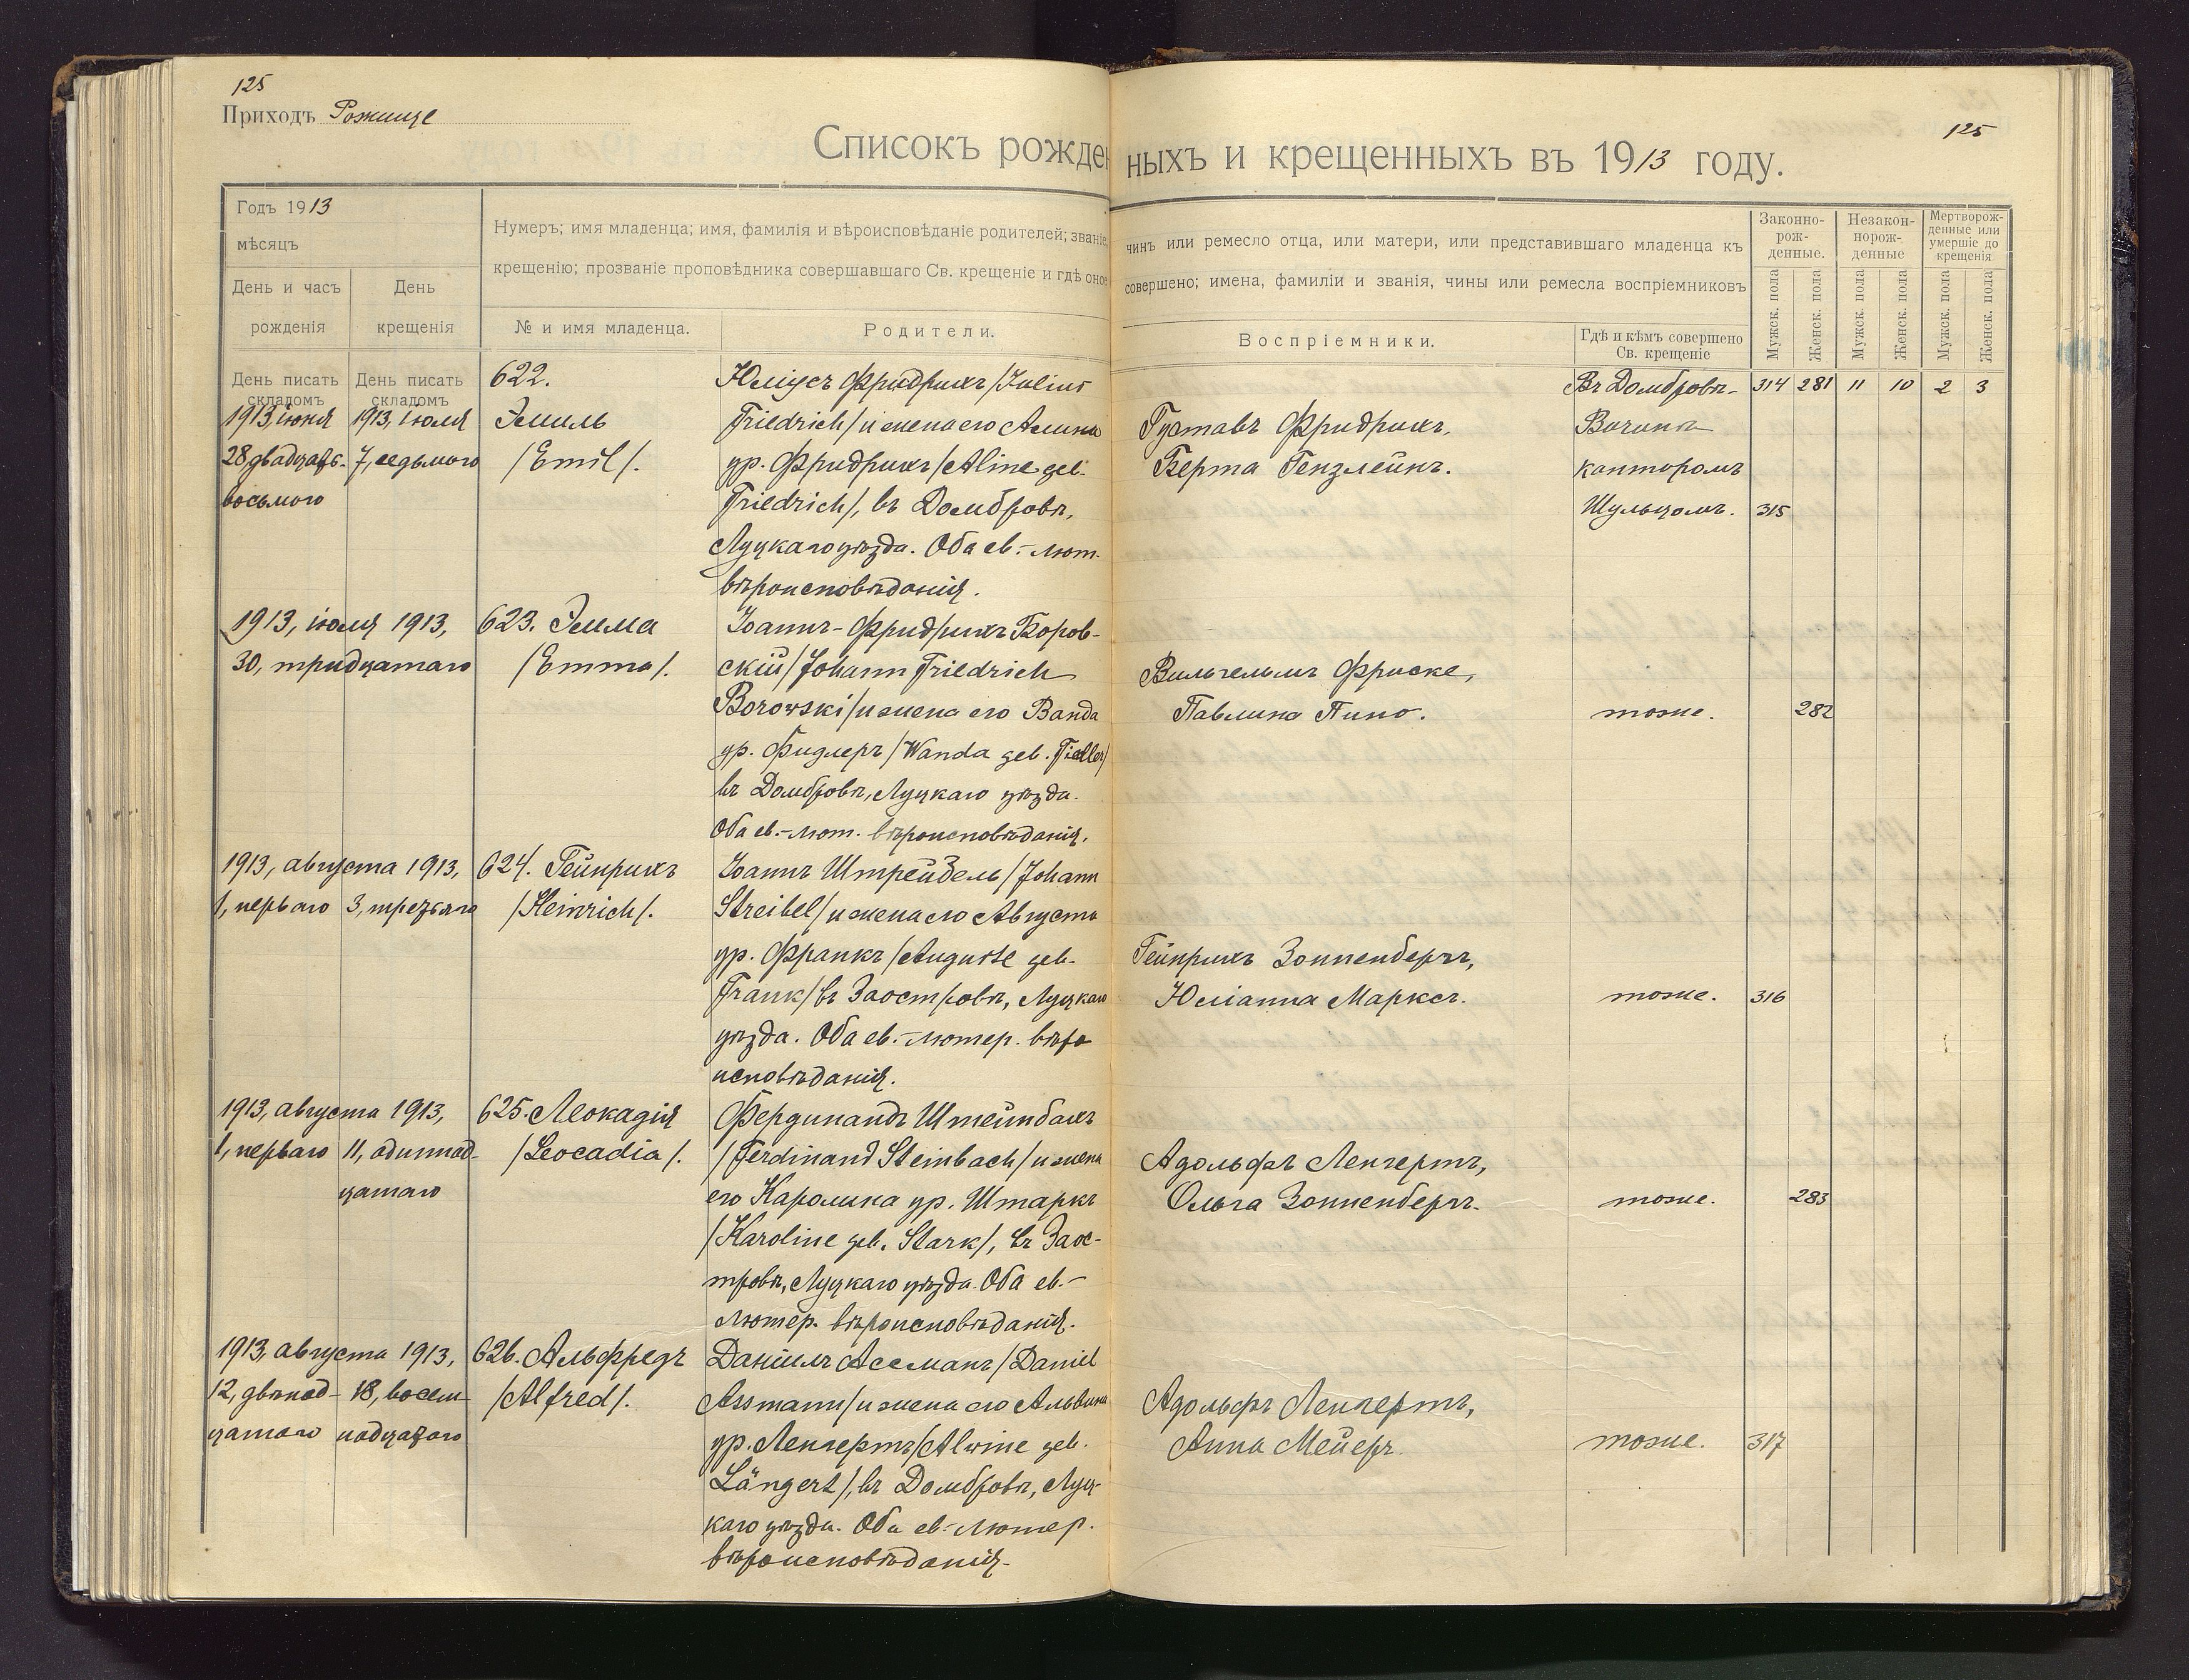 125
Приходъ Рожище
125
Списокъ рожденныхъ и крещенныхъ въ 1913 году.
Годъ 1913
мѣсяцъ
День и часъ рожденія
День крещенія
Нумеръ; имя младенца; имя, фамилія и вѣроисповѣданіе родителей; званіе, чинъ или ремесло отца, или матери, или представившаго младенца къ
крещенію; прозваніе проповѣдника совершавшаго Св. крещеніе и гдѣ оное совершено; имена, фамиліи и званія, чины или ремесла воспріемниковъ
№ и имя младенца.
Родители.
Воспріемники.
Гдѣ и кѣмъ совершено
Св. крещеніе
Законно-
рож-
денные.
Незакон-
норож-
денные
Мертворож-
денные или
умершіе до
крещенія
Мужск. пола
Женск. пола
Мужск. пола
Женск. пола
Мужск. пола
Женск. пола
День писать
складомъ
День писать
складомъ
314 281 11 10 2 3
1913, іюня
28 двадцать-
восьмого
1913, іюля
7, седьмого
622.
Эмиль
/Emil/.
Юліусъ Фридрихъ /Julius
Friedrich/ и жена его Алина
ур. Фридрихъ /Aline geb.
Friedrich/, въ Домбровѣ,
Луцкаго уѣзда. Оба ев.-лют.
вѣроисповѣданія.
Густавъ Фридрихъ,
Берта Гензлейнъ.
Въ Домбровѣ-
канторомъ
Шульцомъ.
315
1913, іюля 1913,
30, тридцатаго
623. Эмма
/Emma/.
Іоаннъ-Фридрихъ Боров-
скій /Johann Friedrich
Borowski/ и жена его Ванда
ур. Фидлеръ /Wanda geb. Fiedler/
въ Домбровѣ, Луцкаго уѣзда.
Оба ев.-лют. вѣроисповѣданія.
Вильгельмъ Фриске,
Павлина Пино.
тоже.
282
1913, августа 1913,
1, перваго 3, третьяго
624. Гейнрихъ
/Heinrich/.
Іоаннъ Штрейбель /Johann
Streibel/ и жена его Августа
ур. Франкъ /Auguste geb.
Frank/ въ Заостровѣ, Луцкаго
уѣзда. Оба ев.-лютер. вѣро
исповѣданія.
Гейнрихъ Зонненбергъ,
Юліанна Марксъ.
тоже.
316
1913, августа 1913,
1, перваго 11, одиннад-
цатаго
625. Леокадія
/Leocadia/.
Фердинандъ Штейнбахъ
/Ferdinand Steinbach/ и жена
его Каролина ур. Штаркъ
/Karoline geb. Stark/, въ Заос-
тровѣ, Луцкаго уѣзда. Оба ев.-
лютер. вѣроисповѣданія.
Адольфъ Ленгертъ,
Ольга Зонненбергъ.
тоже.
283
1913, августа 1913,
12, двѣнад- 18, восем
цатаго надцатаго
626. Альфредъ
/Alfred/.
Даніилъ Ассманъ /Daniel
Assmann/ и жена его Альвина
ур. Ленгертъ /Alwine geb.
Längert/, въ Домбровѣ, Луц-
каго уѣзда. Оба ев-лютер.
вѣроисповѣданія.
Адольфъ Ленгертъ,
Анна Мейеръ.
тоже.
317